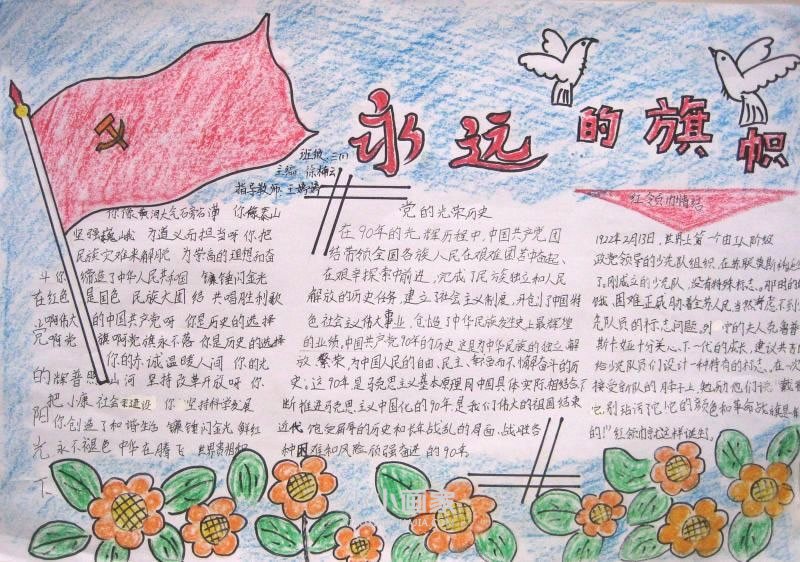 永远的旗帜
班级:三(1)
主编:徐楠云
指导教师:王婷婷
你像黄河大气磅礴 你像泰山
坚强巍峨 为道义而担当呀你把
民族灾难来解脱 为崇高的理想而奋
斗 你缔造了中华人民共和国 镰锤闪金光
在红色是国色 民族大团结 共唱胜利歌
啊伟大的中国共产党呀 你是历史的选择
光旗啊党旗永不落 你是历史的选择
你的赤诚温暖人间 你的光
的辉普照山河 坚持改革开放呀 你
把小康社会来建设 你坚持科学发展
阳 你创造了和谐生活 镰锤闪金光 鲜红
光 永不褪色 中华在腾飞 世界贵相和
下
党的光荣历史
在90年的光辉历程中,中国共产党团
结带领全国各族人民在艰难困苦中奋起、
在艰辛探索中前进,完成了民族独立和人民
解放的历史任务,建立了社会主义制度,开创了中国特
色社会主义伟大事业,创造了中华民族发展史上最辉煌
的业绩,中国共产党90年的历史,这是为中华民族的独立、解
放、繁荣,为中国人民的自由、民主、幸福而不懈奋斗的历
史;这90年是马克思主义基本原理同中国具体实际相结合不
断推进马克思主义中国化的90年是我们伟大的祖国结束
近代饱受屈辱的历史和长年战乱的局面、战胜各
种困难和风险顽强奋进的90年
红领巾的情结
1922年2月13日,世界上第一个由工人阶级
政党领导的少先队组织,在苏联莫斯科
了,刚成立的少先队,没有特殊标志,那时的
俄,困难正威胁着全苏人民当然考虑不到少
先队员的标志问题。列宁的夫人克鲁普
斯卡娅十分关心下一代的成长,建议共青
给少先队员们设计一种特有的标志,在一次
接受新队的队日上,她勉励他们说:戴着
它,别玷污了它,它的颜色和革命战旗是
的!"红领巾就这样诞生。